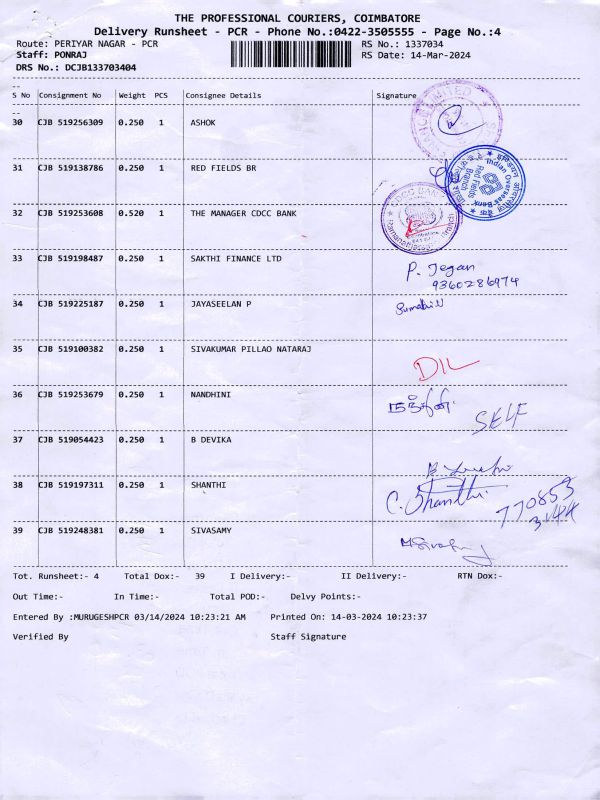 THE PROFESSIONAL COURIERS, COIMBATORE
Delivery Runsheet - PCR - Phone No.:0422-3505555 - Page No.:4
Route: PERIYAR NAGAR - PCR RS No.: 1337034
Staff: PONRAJ RS Date: 14-Mar-2024
DRS No.: DCJB133703404
S No Consignment No Weight PCS Consignee Details Signature
30 CJB 519256309 0.250 1 ASHOK
31 CJB 519138786 0.250 1 RED FIELDS BR
Indian Overseas Bank
Red Fields Branch
32 CJB 519253608 0.520 1 THE MANAGER CDCC BANK
CDCC BANK
33 CJB 519198487 0.250 1 SAKTHI FINANCE LTD P. Jegan
9360286974
34 CJB 519225187 0.250 1 JAYASEELAN P Sumathi N
35 CJB 519100382 0.250 1 SIVAKUMAR PILLAO NATARAJ
DIL
36 CJB 519253679 0.250 1 NANDHINI நந்தினி
SELF
37 CJB 519054423 0.250 1 B DEVIKA
38 CJB 519197311 0.250 1 SHANTHI C. Shanthi
770853
3144
39 CJB 519248381 0.250 1 SIVASAMY
Tot. Runsheet:- 4 Total Dox:- 39 I Delivery:- II Delivery:- RTN Dox:-
Out Time:- In Time:- Total POD:- Delvy Points:-
Entered By :MURUGESHPCR 03/14/2024 10:23:21 AM Printed On: 14-03-2024 10:23:37
Verified By Staff Signature